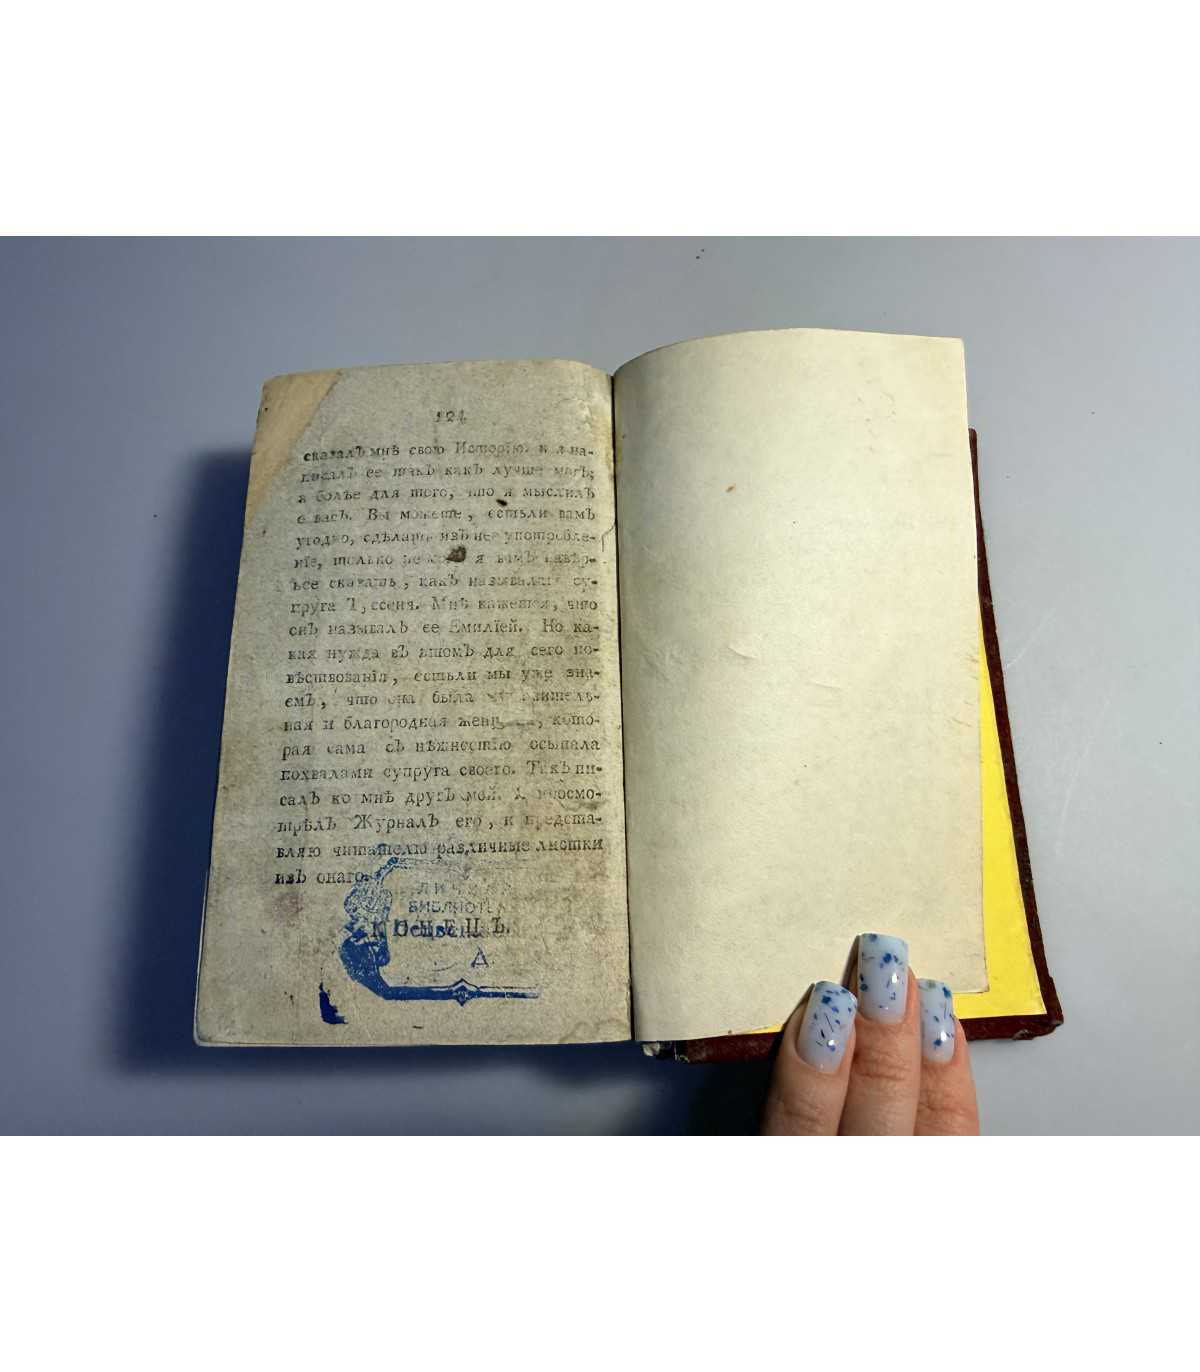 124
сказалъ мнѣ свою Исторїю, и я на-
писалъ ее такъ какъ лучше могъ;
а болѣе для того, что я мыслилъ
о васъ. Вы можете, естьли вамъ
угодно, сдѣлать изъ нее употребле-
нїе, только не я вамъ
сказать, какъ называлась су-
пруга Т,ссеня. Мнѣ кажется, что
онъ называлъ ее Емилїей. Но ка-
кая нужда въ этомъ для сего по-
вѣствованїя, естьли мы уже зна-
емъ, что она была
ная и благородная женщина, кото-
рая сама съ нѣжностїю осыпала
похвалами супруга своего. Такъ пи-
салъ ко мнѣ другъ мой. Я просмо-
трѣлъ Журналъ его, и предста-
вляю читателю различные листки
изъ онаго.
КОНЕЦЪ.
ЛИЧНАЯ
БИБЛИОТЕКА
А